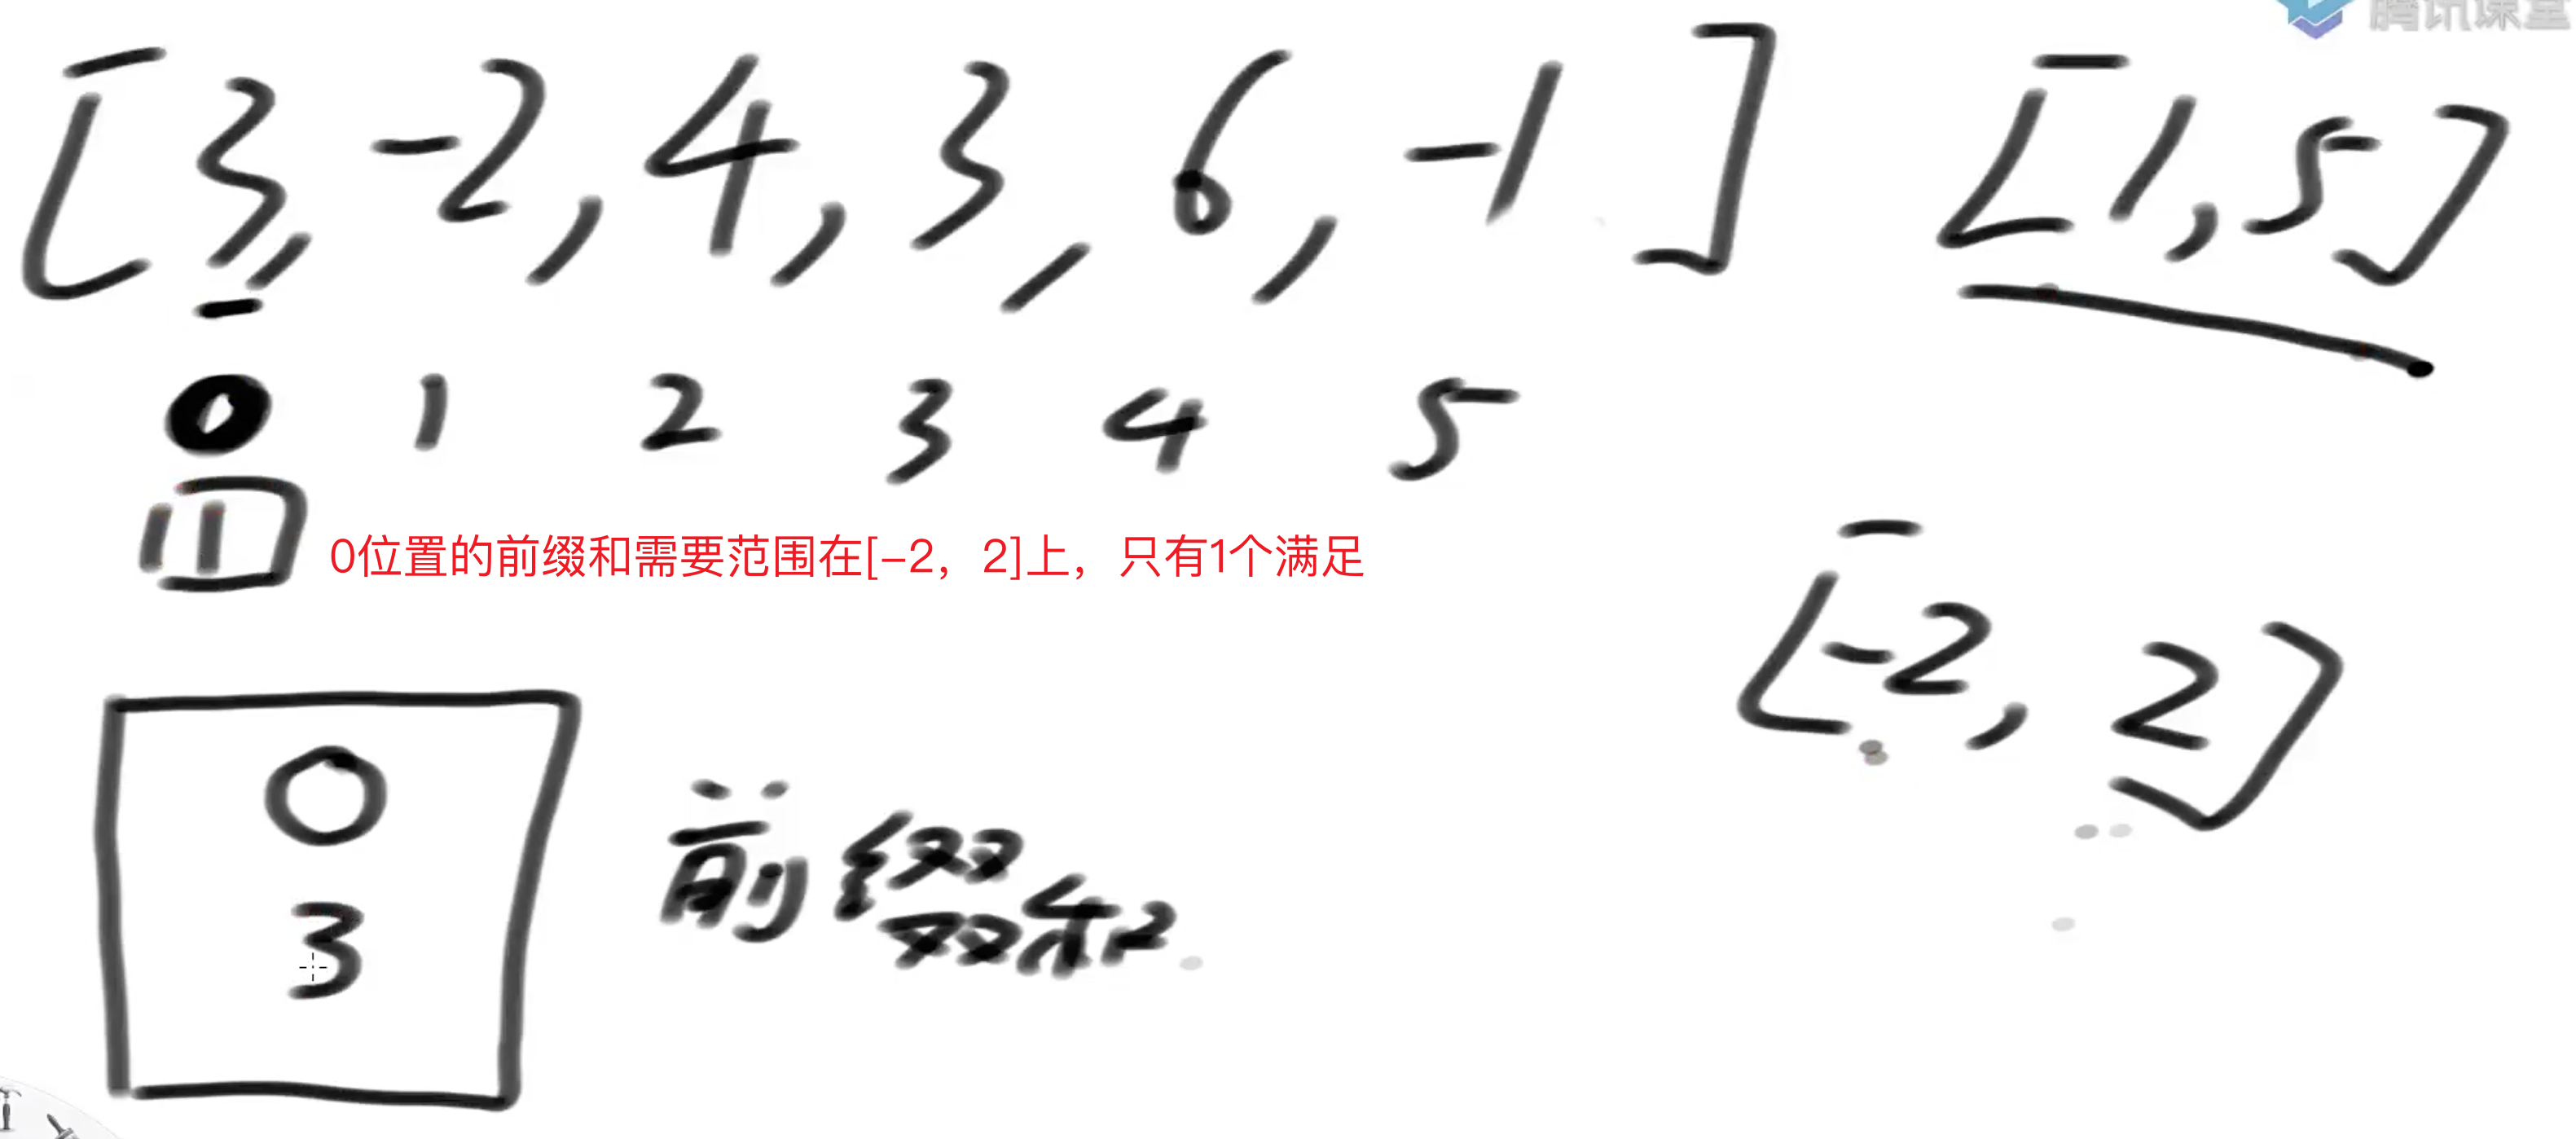 腾讯课堂
[3, -2, 4, 3, 6, -1] [1, 5]
0 1 2 3 4 5
0位置的前缀和需要范围在[-2，2]上，只有1个满足
[-2, 2]
0
3
前缀和